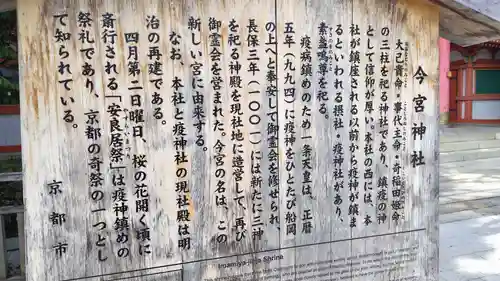 今宮神社
大己貴命・事代主命・奇稲田姫命
の三柱を祀る神社であり、鎮疫の神
として信仰が厚い。本社の西には、本
社が鎮座される以前から疫神が鎮ま
るといわれる摂社・疫神社があり、
素盞鳴尊を祀る。
疫病鎮めのため、一条天皇は、正暦
五年（九九四）に疫神をひとたび船岡
の上へと奉安して御霊会を修せられ、
長保三年（一〇〇一）には新たに三神
を祀る神殿を現社地に造営して、再び
御霊会を営まれた。今宮の名は、この
新しい宮に由来する。
なお、本社と疫神社の現社殿は明
治の再建である。
四月第二日曜日、桜の花開く頃に
斎行される「安良居祭」は疫神鎮めの
祭礼であり、京都の奇祭の一つとし
て知られている。
京都市
Imamiya-jinja Shrine